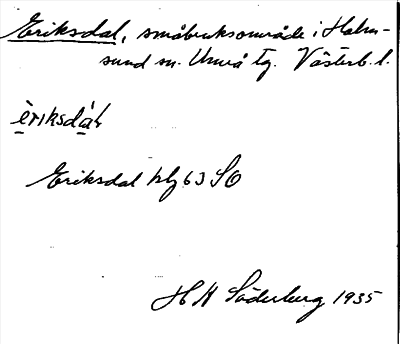 Eriksdal, småbruksområde i Holm-
sund sn. Umeå tg. Västerb. l.
èriksdáL
Eriksdal blz 63 SO
H H Söderberg 1935